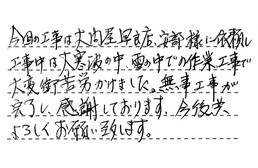 今回の工事は大内屋呉服店、安部様に依頼し
工事中は大寒波の中、雪の中での作業工事で
大変御苦労かけました。無事工事が
完了し、感謝しております。今後共
よろしくお願い致します。